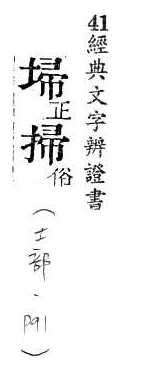 41經典文字辨證書
埽正掃俗
(土部、P91)